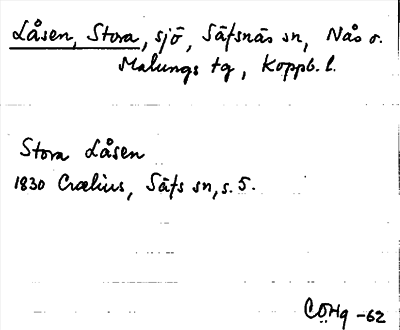 Låsen, Stora, sjö, Säfsnäs sn, Nås o.
Malungs tg, Koppb. l.
Stora Låsen
1830 Crælius, Säfs sn, s. 5.
CÖHg -62